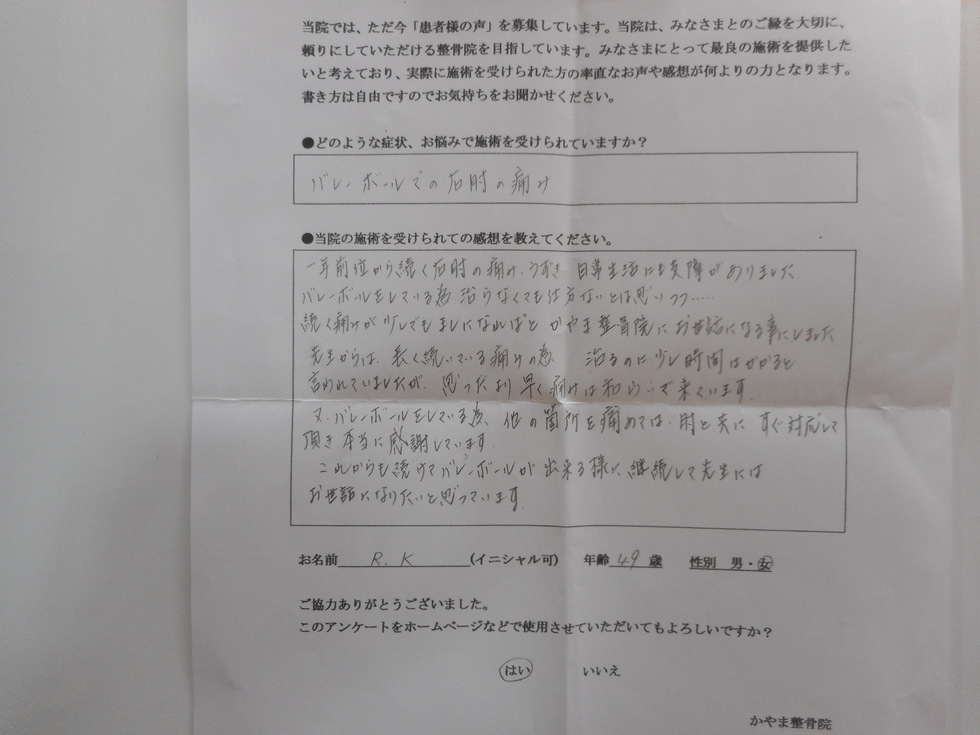 当院では、ただ今「患者様の声」を募集しています。当院は、みなさまとのご縁を大切に、
頼りにしていただける整骨院を目指しています。みなさまにとって最良の施術を提供した
いと考えており、実際に施術を受けられた方の率直なお声や感想が何よりの力となります。
書き方は自由ですのでお気持ちをお聞かせください。
●どのような症状、お悩みで施術を受けられていますか？
バレーボールでの右肘の痛み
●当院の施術を受けられての感想を教えてください。
一年前位から続く右肘の痛み、うずき 日常生活にも支障がありました。
バレーボールをしている為 治らなくても仕方ないとは思いつつ……
続く痛みが少しでもましになればと かやま整骨院にお世話になる事にしました
先生からは、長く続いている痛みの為 治るのに少し時間はかかると
言われていましたが、思ったより早く痛みは和らいで来ています。
又、バレーボールをしている為、他の箇所を痛めては、肘と共に すぐ対応して
頂き本当に感謝しています。
これからも続けてバレーボールが出来る様に、継続して先生には
お世話になりたいと思っています。
お名前 R.K (イニシャル可) 年齢 49 歳 性別 男・女
ご協力ありがとうございました。
このアンケートをホームページなどで使用させていただいてもよろしいですか？
はい いいえ
かやま整骨院